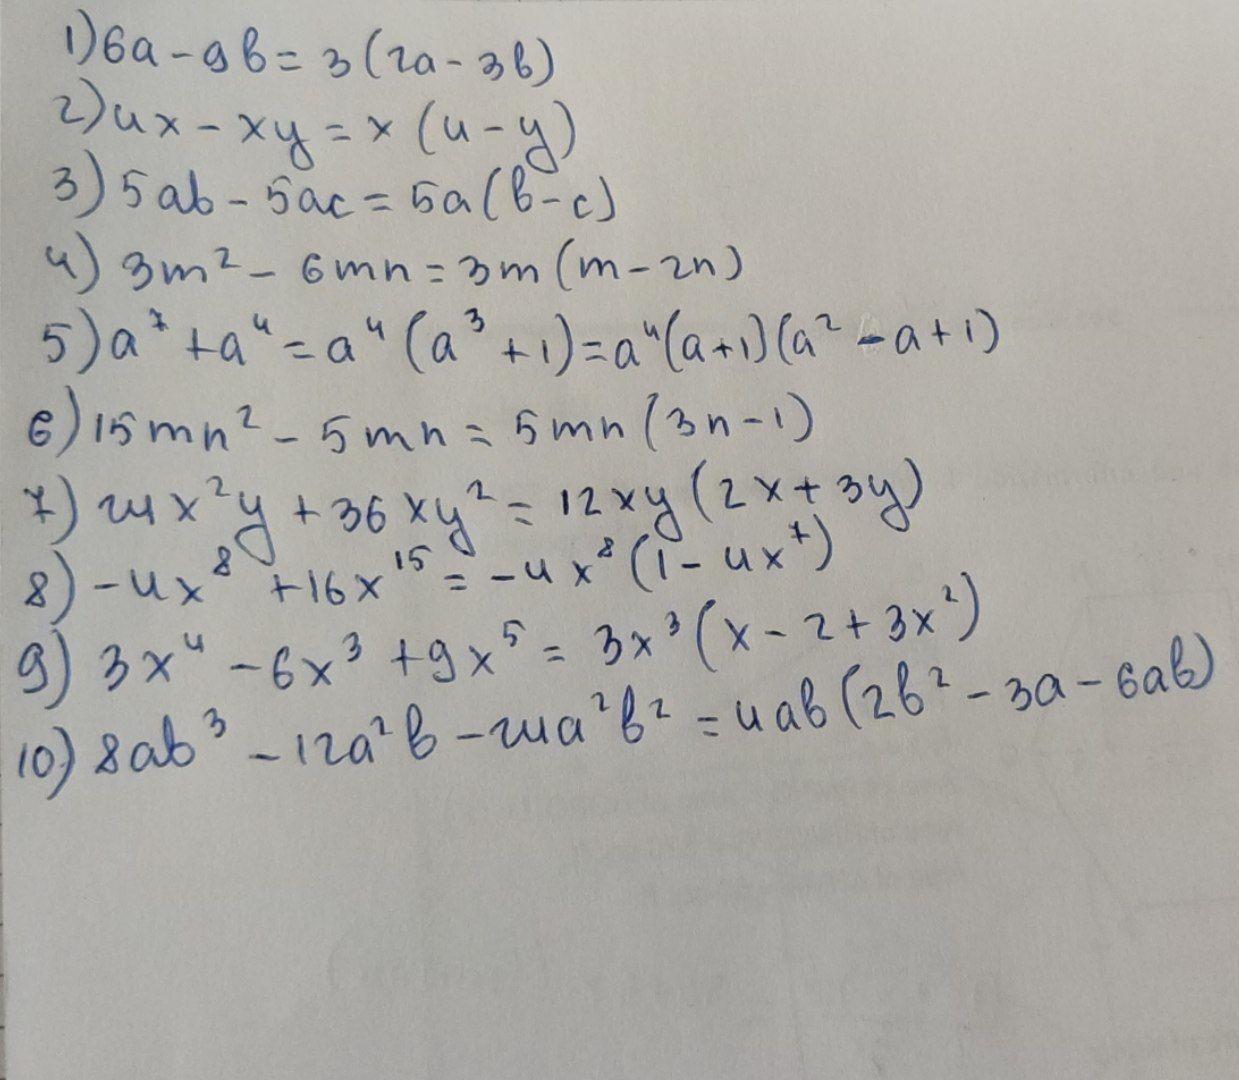 1) 6a - 9b = 3(2a - 3b)
2) 4x - xy = x(4 - y)
3) 5ab - 5ac = 5a(b - c)
4) 3m² - 6mn = 3m(m - 2n)
5) a⁷ + a⁴ = a⁴(a³ + 1) = a⁴(a+1)(a² - a + 1)
6) 15mn² - 5mn = 5mn(3n - 1)
7) 24x²y + 36xy² = 12xy(2x + 3y)
8) -4x⁸ + 16x¹⁵ = -4x⁸(1 - 4x⁷)
9) 3x⁴ - 6x³ + 9x⁵ = 3x³(x - 2 + 3x²)
10) 8ab³ - 12a²b - 24a²b² = 4ab(2b² - 3a - 6ab)